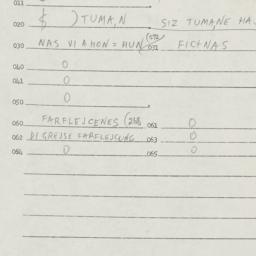 011
020 ) TUMA,N SIZ TUMA,NE HA
030 NAS VI A HON = HUN (032 031 FICHNAS
040 0
041 0
050 0
060 FARFLEJCENES (268) 061 0
062 DI GREJSE FARFLEJCUNG 063 0
064 0 065 0